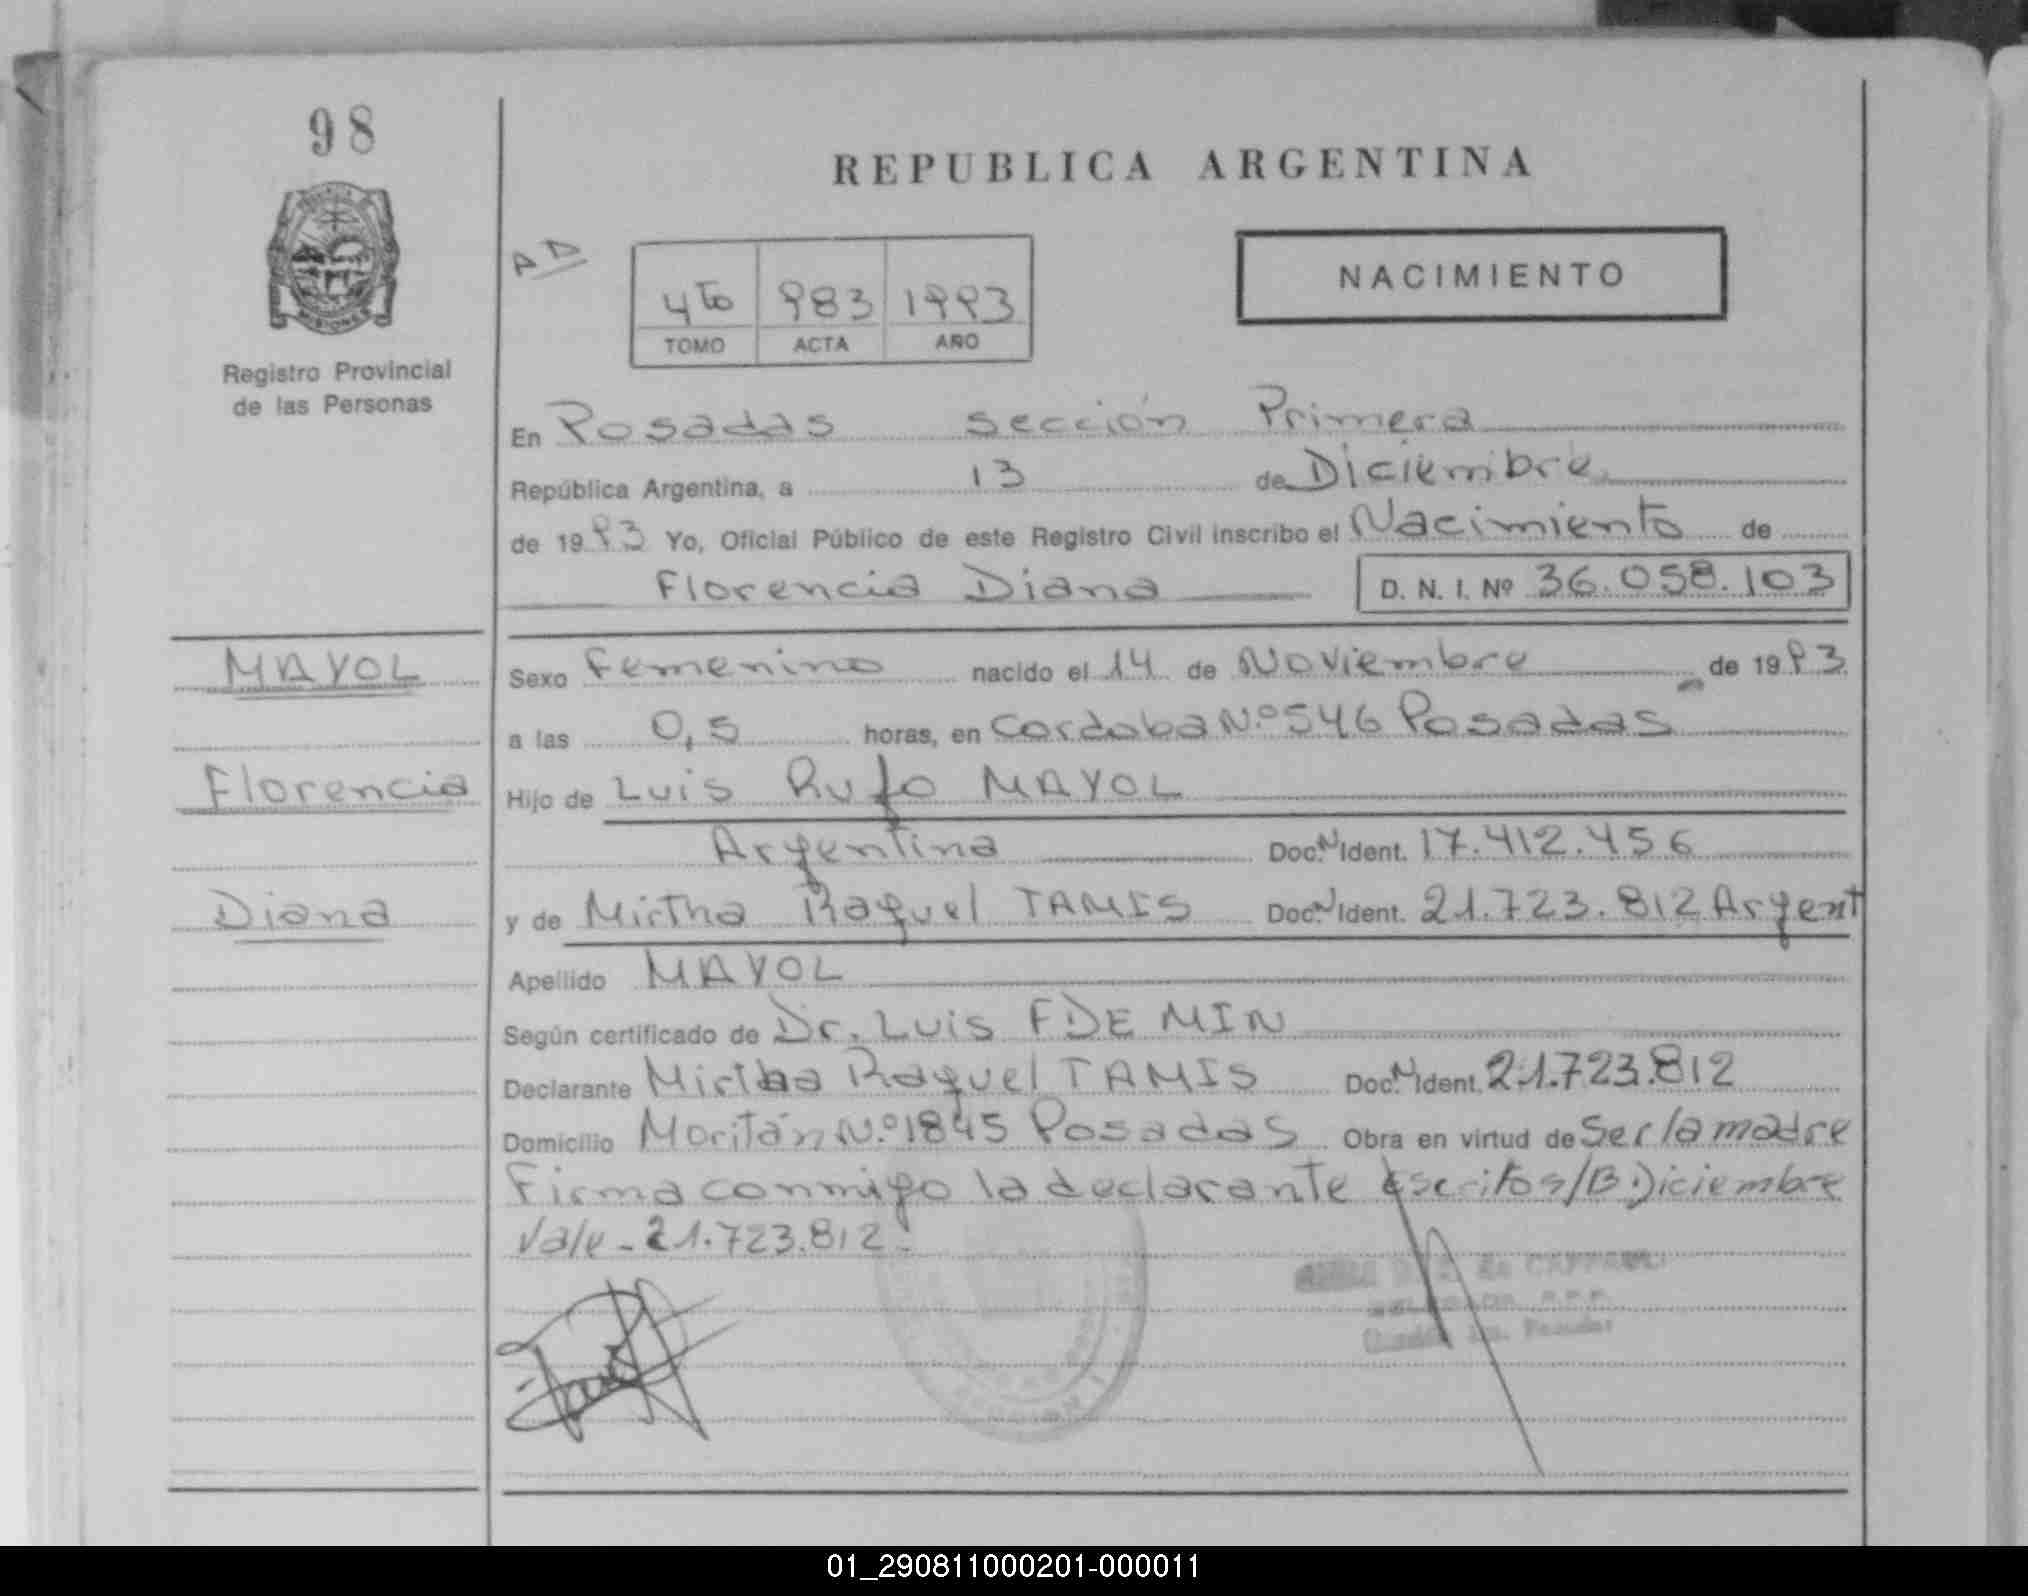 98
REPUBLICA ARGENTINA
AD
NACIMIENTO
4to 983 1993
TOMO ACTA AÑO
MISIONES
Registro Provincial
de las Personas
En Posadas sección Primera
República Argentina, a 13 de Diciembre
de 1993 Yo, Oficial Público de este Registro Civil inscribo el Nacimiento de
Florencia Diana D. N. I. Nº 36.058.103
MAYOL
Sexo Femenino nacido el 14 de Noviembre de 1993
a las 0,5 horas, en Cordoba N.º 546 Posadas
Florencia
Hijo de Luis Rufo MAYOL
Argentina Doc. N Ident. 17.412.456
Diana
y de Mirtha Raquel TAMIS Doc. N Ident. 21.723.812 Argent
Apellido MAYOL
Según certificado de Dr. Luis F DE MIN
Declarante Mirtha Raquel TAMIS Doc. N Ident. 21.723.812
Domicilio Moritán N.º 1845 Posadas Obra en virtud de Ser la madre
Firma conmigo la declarante Escritos/ Diciembre
Vale - 21.723.812.
01_290811000201-000011